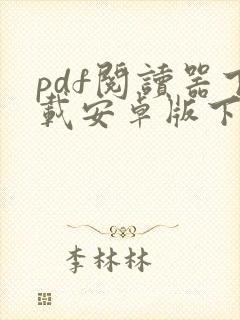 pdf閱讀器下
載安卓版下
李林林